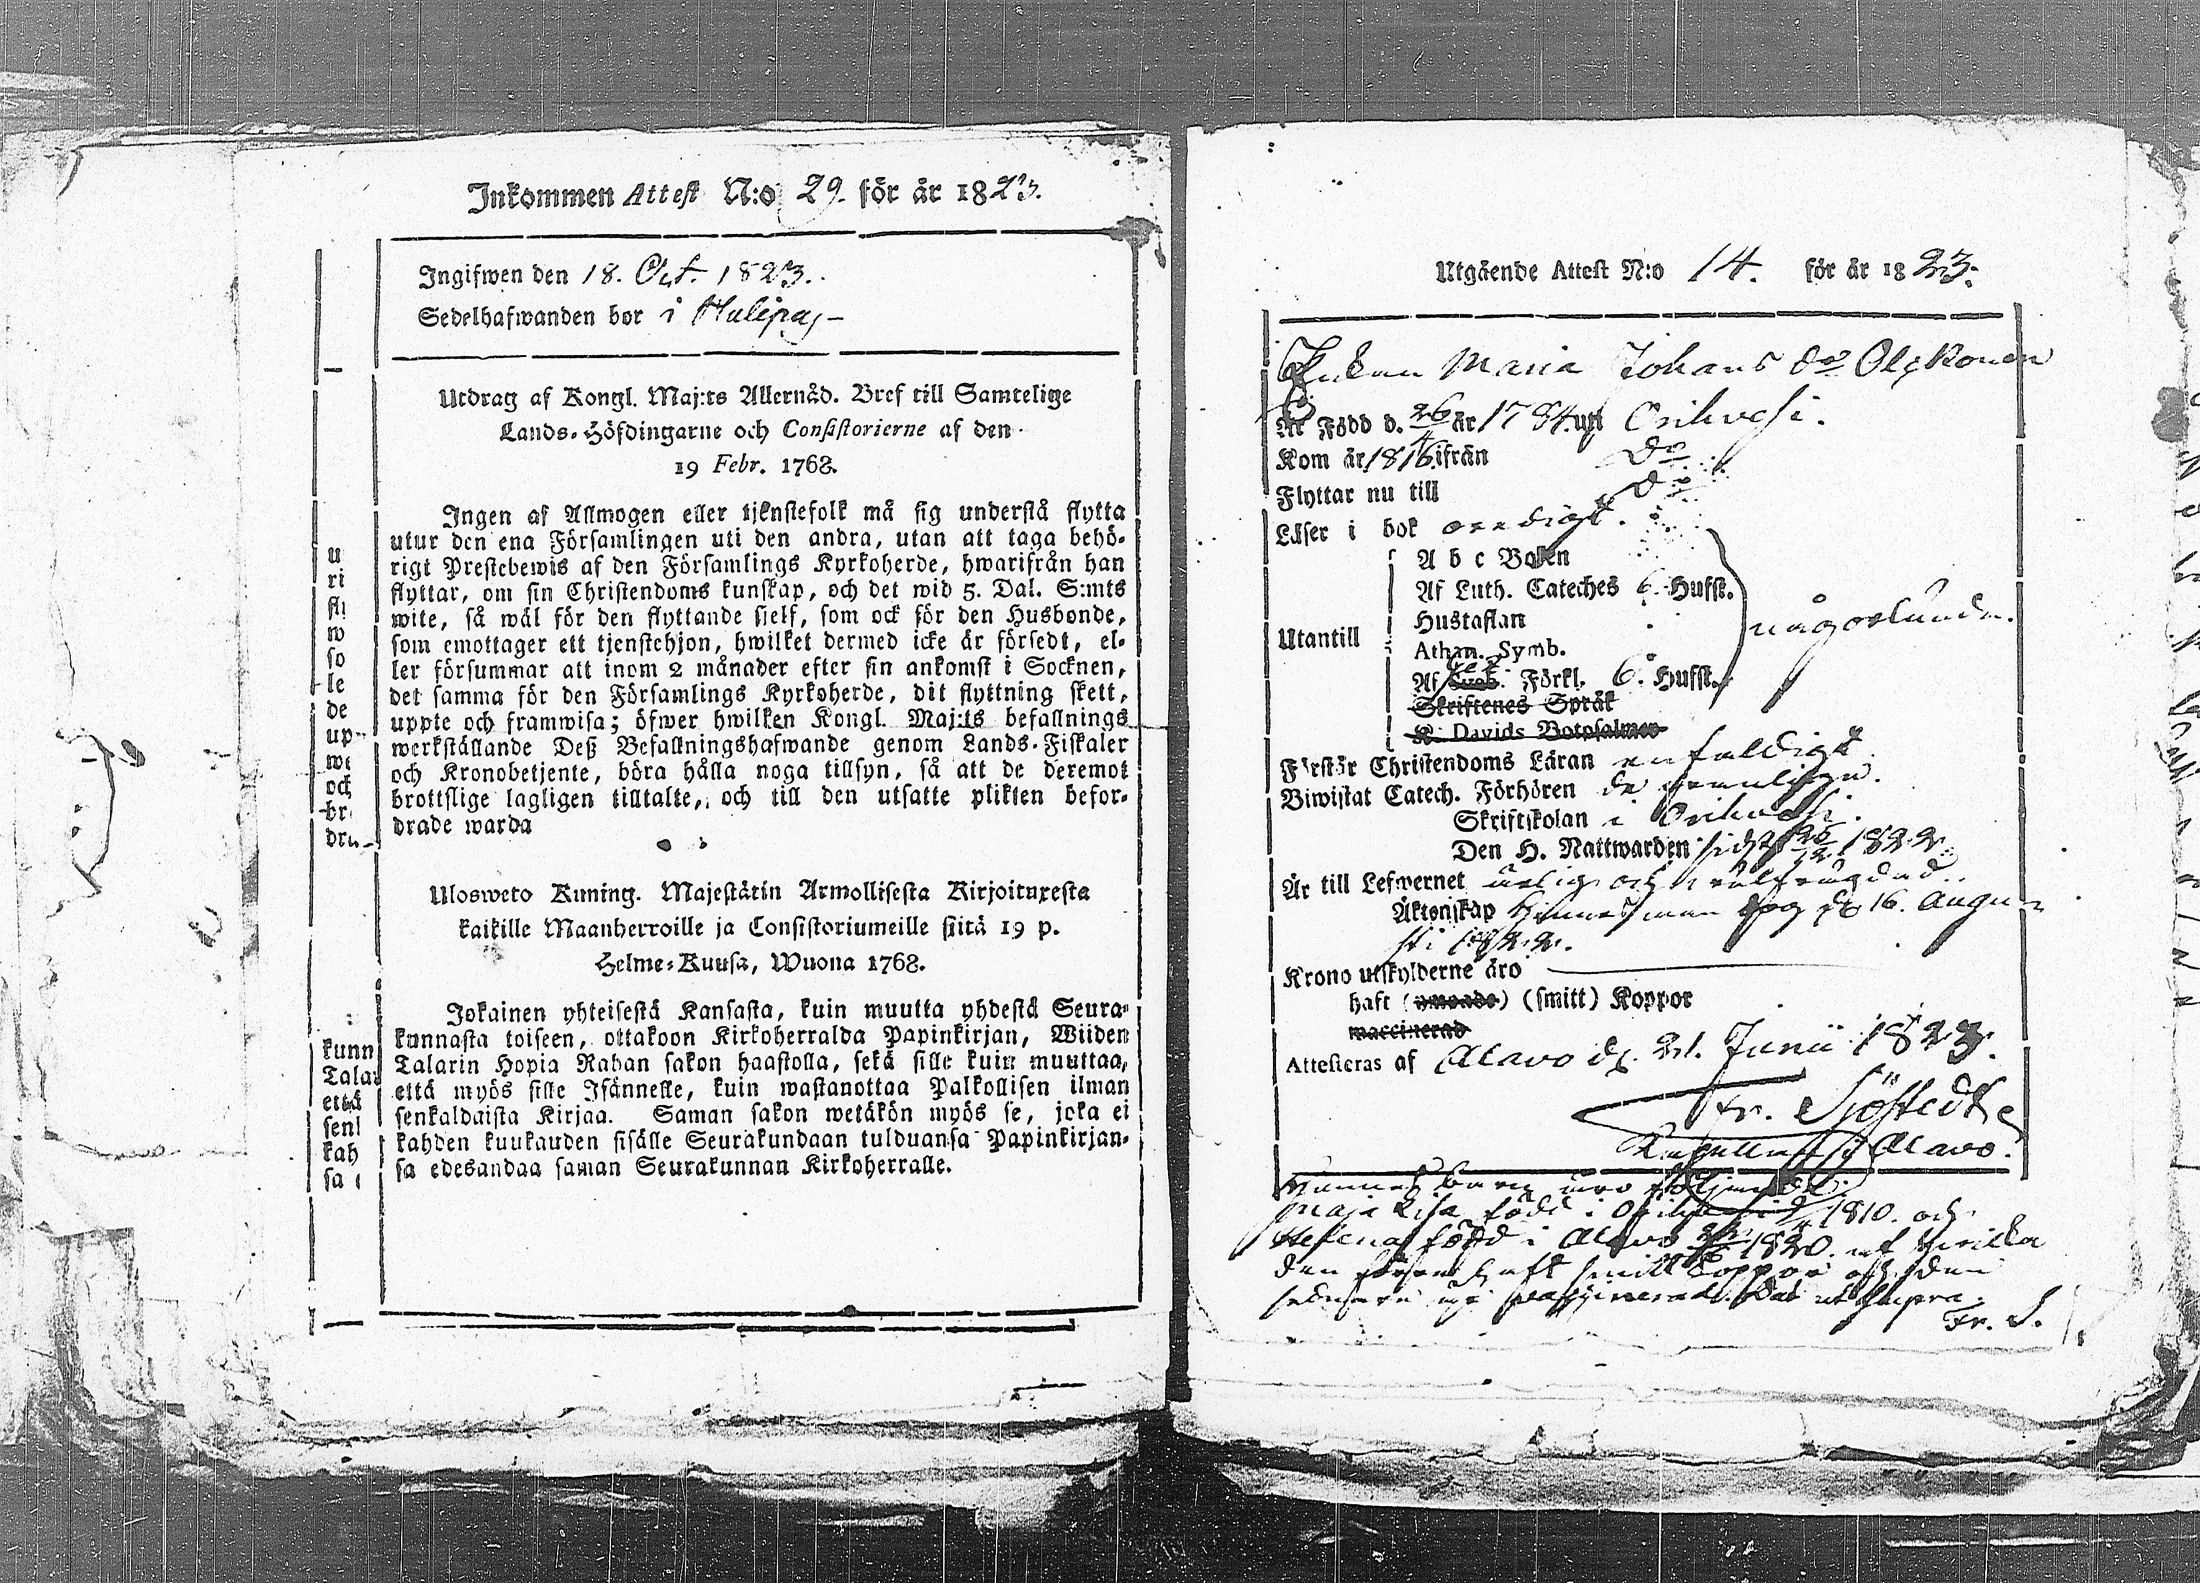 Inkommen Attest N:o 29. för år 1823.
Ingifwen den 18. Oct. 1823.
Sedelhafwanden bor i
Utdrag af Kongl. Maj:ts Allernåd. Bref till Samtelige
Lands-Höfdingarne och Consistorierne af den
19 Febr. 1768.
Ingen af Allmogen eller tjenstefolk må sig understå flytta
utur den ena Församlingen uti den andra, utan att taga behö-
rigt Prestebewis af den Församlings Kyrkoherde, hwarifrån han
flyttar, om sin Christendoms kunskap, och det wid 5. Dal. S:mts
wite, så wäl för den flyttande sielf, som ock för den Husbonde,
som emottager ett tjenstehjon, hwilket dermed icke är försedt, el-
ler försummar att inom 2 månader efter sin ankomst i Socknen,
det samma för den Församlings Kyrkoherde, dit flyttning skett,
uppte och framwisa; öfwer hwilken Kongl. Maj:ts befallnings
werkställande Deß Befallningshafwande genom Lands-Fiskaler
och Kronobetjente, böra hålla noga tillsyn, så att de deremot
brottslige lagligen tilltalte, och till den utsatte plikten befor-
drade warda
Ulosweto Kuning. Majestätin Armollisesta Kirjoituxesta
kaikille Maanherroille ja Consistoriumeille siitä 19 p.
Helme-Kuusa, Wuona 1768.
Jokainen yhteisestä Kansasta, kuin muutta yhdestä Seura-
kunnasta toiseen, ottakoon Kirkoherralda Papinkirjan, Wiiden
Talarin Hopia Rahan sakon haastolla, sekä sille kuin muuttaa,
että myös sille Isännelle, kuin wastanottaa Palkollisen ilman
senkaldaista Kirjaa. Saman sakon wetäkön myös se, joka ei
kahden kuukauden sisälle Seurakundaan tulduansa Papinkirjan-
sa edesandaa saman Seurakunnan Kirkoherralle.
u
ri
fly
w
so
le
de
up
we
och
br
dra
kunn
Talar
että
senk
kah
sa
Utgående Attest N:o 14. för år 1823.
Enkan Maria Johans do Olckonen
Är Född d. 26/4 år 1784 uti Orihvesi.
Kom år 1816 ifrån Do
Flyttar nu till Do
Läser i bok oredigt.
A b c Boken
Af Luth. Cateches 6 Hufst.
Hustaflan
Utantill någorlunda.
Athan. Symb.
Af Sveb. Förkl. 6. Hufst.
Skriftenes Språk
K. Davids Botpsalmer
Förstår Christendoms Läran enfaldigt
Biwistat Catech. Förhören
Skriftskolan i Orihvesi.
Den H. Nattwarden sidst 1822.
Är till Lefwernet ärlig och
Äktenskap hennes man dog d. 16. Augu-
sti 1822.
Krono utskylderne äro
haft (ympade) (smitt) Koppor
waccinerad
Attesteras af Alavo d. 21. Junii 1823.
Fr. Sjöstedt
Capellan i Alavo.
Hennes barn äro följande:
Maja Lisa född i 1810. och
Helena född i Alavo 1820. af hvilka
den förra haft smitt koppor och den
sednare är vaccinerad. Dat ut supra.
Fr. S.